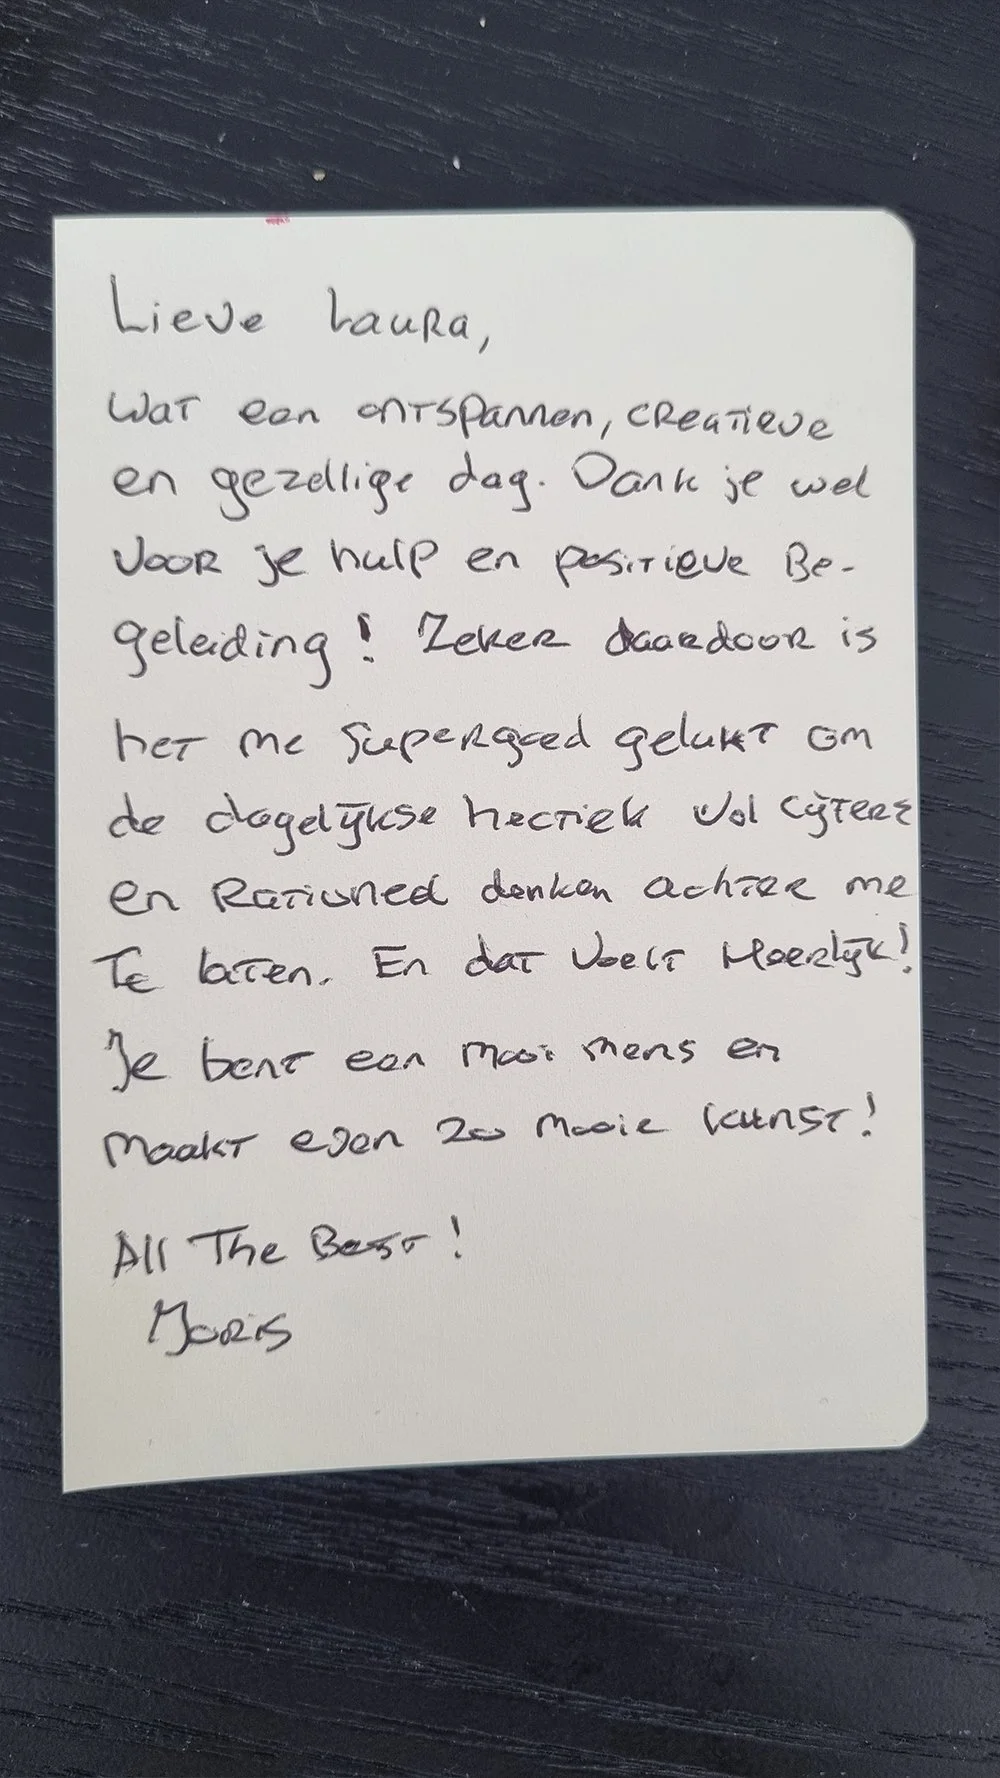 Lieve Laura,
Wat een ontspannen, creatieve
en gezellige dag. Dank je wel
voor je hulp en positieve Be-
geleiding! Zeker daardoor is
het me supergoed gelukt om
de dagelijkse hectiek vol cijfers
en Rationeel denken achter me
te laten. En dat voelt Heerlijk!
Je bent een mooi mens en
maakt even zo mooie kunst!
All The Best!
Joris